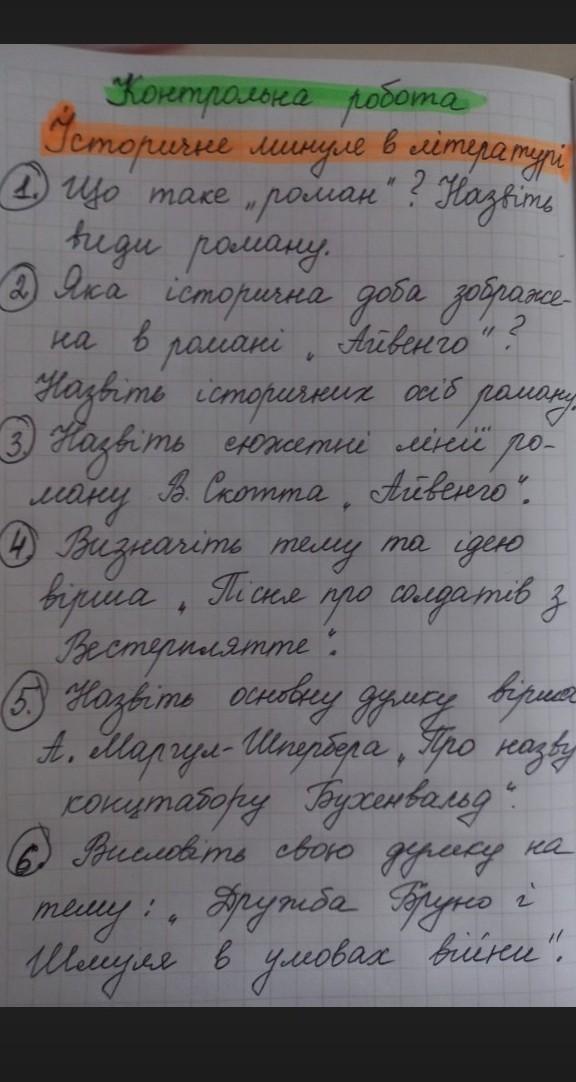 Контрольна робота
Історичне минуле в літературі
1. Що таке „роман"? Назвіть
види роману.
2) Яка історична доба зображе-
на в романі „Айвенго"?
Назвіть історичних осіб роману.
3. Назвіть сюжетні лінії ро-
ману В. Скотта „Айвенго".
4. Визначіть тему та ідею
вірша „Пісня про солдатів з
Вестерплятте".
5. Назвіть основну думку вірша
А. Маргул-Шпербера „Про назву
концтабору Бухенвальд".
6. Висловіть свою думку на
тему: „Дружба Бруно і
Шмуля в умовах війни".